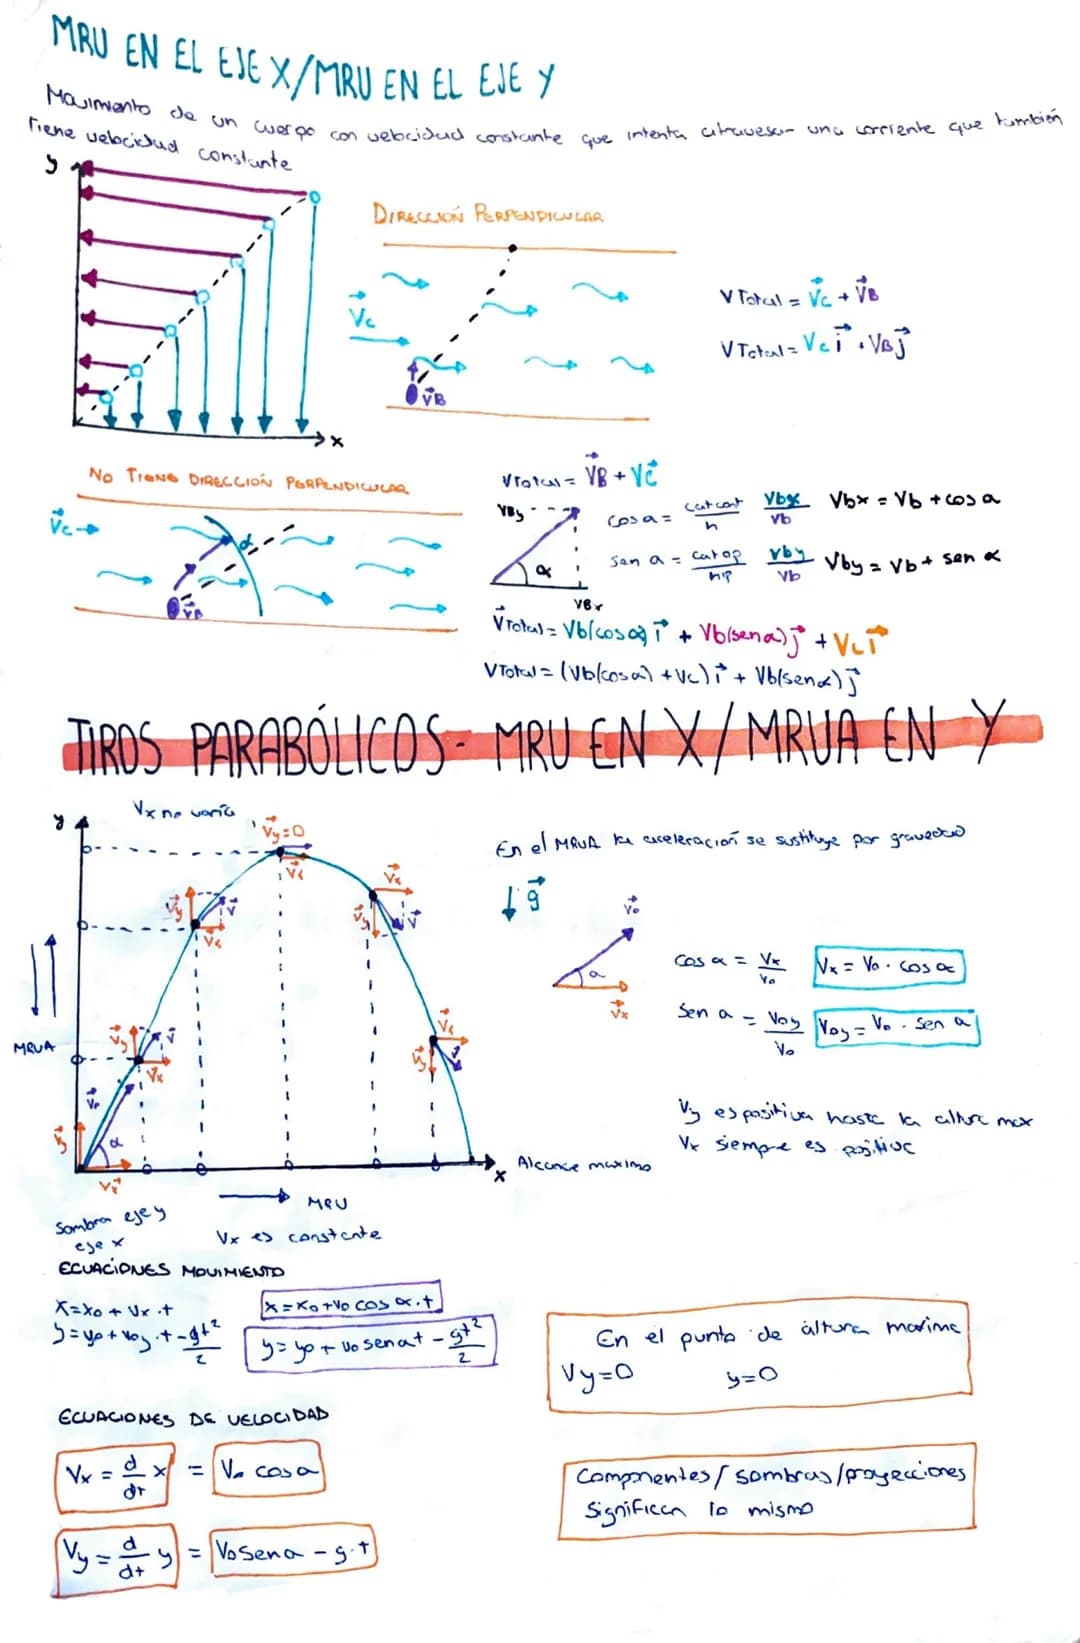 MRU EN EL EJE X/MRU EN EL EJE Y
Movimiento de un cuerpo con velocidad constante que intenta atravesar una corriente que también
Tiene velocidad constante
y
x
DIRECCIÓN PERPENDICULAR
Vc
VB
VTotal = Vc + VB
VTotal = Vc i + VB j
NO TIENE DIRECCIÓN PERPENDICULAR
Vc
α
VB
VTotal = VB + VC
VBy
α
VBx
cos a = cat cont / h Vbx / Vb Vbx = Vb + cos a
sen a = cat op / hip Vby / Vb Vby = Vb + sen α
VTotal = Vb(cos α) i + Vb(sen a) j + Vc i
VTotal = (Vb(cos α) + Vc) i + Vb(sen α) j
TIROS PARABÓLICOS - MRU EN X/MRUA EN Y
Vx no varía
y
Vy=0
Vx
Vy V Vx
Vx Vy V
MRUA
Vy V Vx
Vx Vy V
Vo
Vy
α
Vx
x
Alcance maximo
MRU
Vx es constante
Sombra eje y
eje x
En el MRUA la aceleración se sustituye por gravedad
g
Vo
α
Vx
cos α = Vx / Vo Vx = Vo · cos α
Sen a = Voy / Vo Voy = Vo · Sen a
Vy es positiva hasta la altura max
Vx siempre es positiva
ECUACIONES MOVIMIENTO
x=xo + Vx·t
y=yo + voy·t - gt²/2
x=xo+vo cos α·t
y=yo + vo sen a t - gt²/2
En el punto de altura maxima
Vy=0 y=0
ECUACIONES DE VELOCIDAD
Vx = d/dt x = Vo cos a
Vy = d/dt y = Vo sen a - g·t
Componentes/sombras/proyecciones
Significan lo mismo